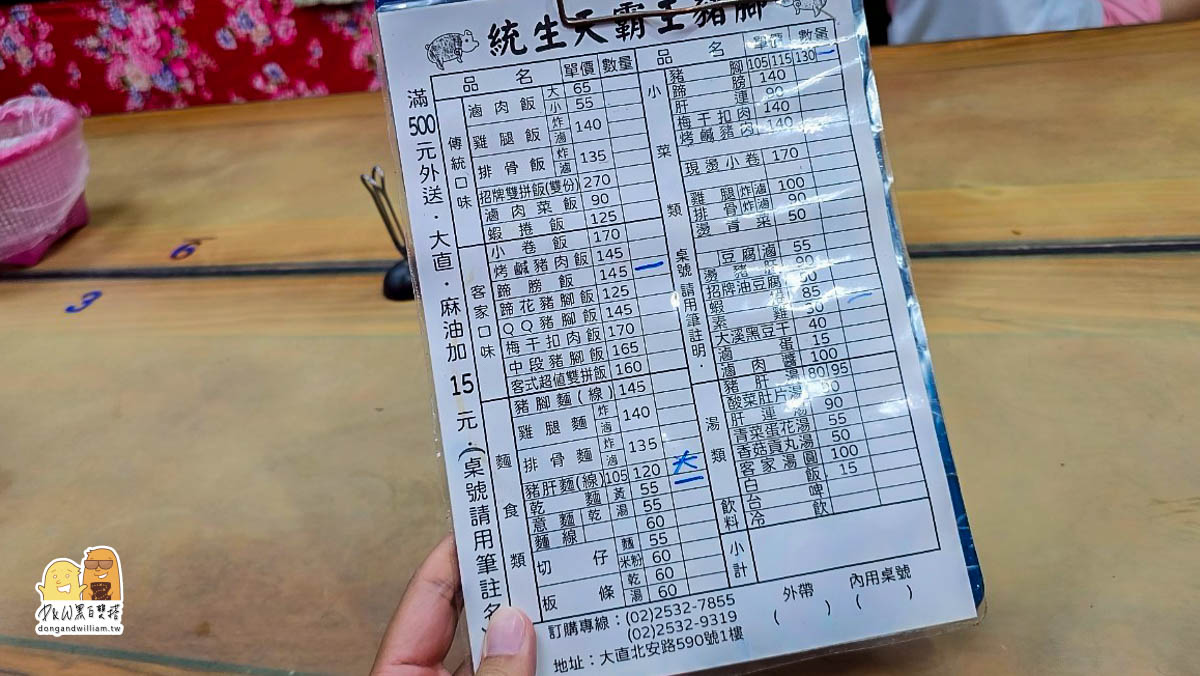 統生大霸王豬腳
滿500元外送．大直．麻油加15元．(桌號請用筆註名
品名 單價 數量
傳統口味
滷肉飯 大 65
小 55
雞腿飯 炸 滷 140
排骨飯 炸 滷 135
招牌雙拼飯(雙份) 270
滷肉菜飯 90
蝦捲飯 125
客家口味
小卷飯 170
烤鹹豬肉飯 145
蹄膀飯 145
蹄花豬腳飯 125
QQ豬腳飯 145
梅干扣肉飯 170
中段豬腳飯 165
客式超值雙拼飯 160
麵食類
豬腳麵(線) 145
雞腿麵 炸 滷 140
排骨麵 炸 滷 135
豬肝麵(線) 105 120 大
乾麵 黃 55
意麵 乾 湯 55
麵線 60
切仔 麵 55
米粉 60
板條 乾 60
湯 60
品名 單價 數量
小菜類
桌號請用筆註明．
豬腳 105 115 130
蹄膀 140
肝連 90
梅干扣肉 140
烤鹹豬肉 140
現燙小卷 170
雞腿 炸 滷 100
排骨 炸 滷 90
燙青菜 50
豆腐滷 55
燙豬肝 90
招牌油豆腐
蝦捲 85
素雞
大溪黑豆干 40
滷蛋 15
滷肉醬 100
湯類
豬肝湯 80 95
酸菜肚片湯 90
肝連湯 90
青菜蛋花湯 55
香菇貢丸湯 50
客家湯圓 100
白飯 15
飲料
台啤
冷飲
小計
訂購專線：(02)2532-7855
(02)2532-9319
地址：大直北安路590號1樓
外帶 ( )
內用桌號 ( )
6
3
P&W黑白雙搭
dongandwilliam.tw